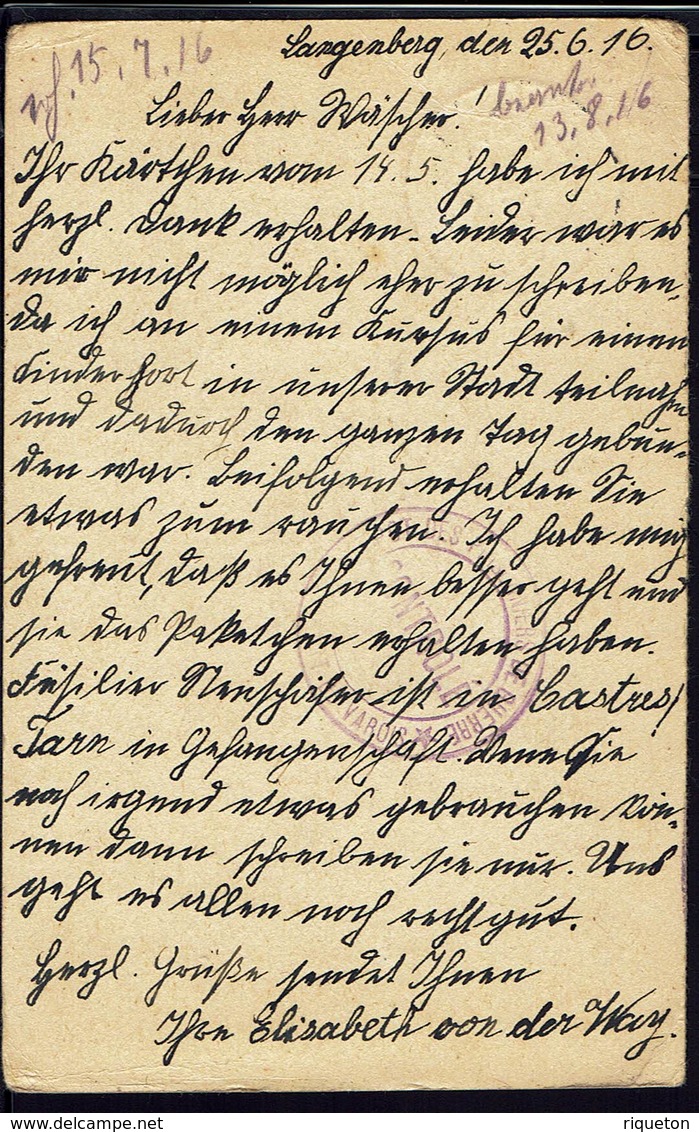 Langenberg, den 25.6.16.
erh. 15.7.16
beantw.
13.8.16
Lieber Herr Wäscher!
Ihr Kärtchen vom 14.5. habe ich mit
herzl. Dank erhalten. Leider war es
mir nicht möglich eher zu schreiben,
da ich an einem Kursus für einen
Kinderhort in unserer Stadt teilnahm
und dadurch den ganzen Tag gebun-
den war. Beifolgend erhalten Sie
etwas zum rauchen. Ich habe mich
gefreut, daß es Ihnen besser geht und
sie das Paketchen erhalten haben.
Füsilier Neuschäfer ist in Castres/
Tarn in Gefangenschaft Wenn Sie
noch irgend etwas gebrauchen kön-
nen dann schreiben sie nur. Uns
geht es allen noch recht gut.
Herzl. Grüße sendet Ihnen
Ihre Elisabeth von der Way.
CONTROLE
GUERRE
riqueton